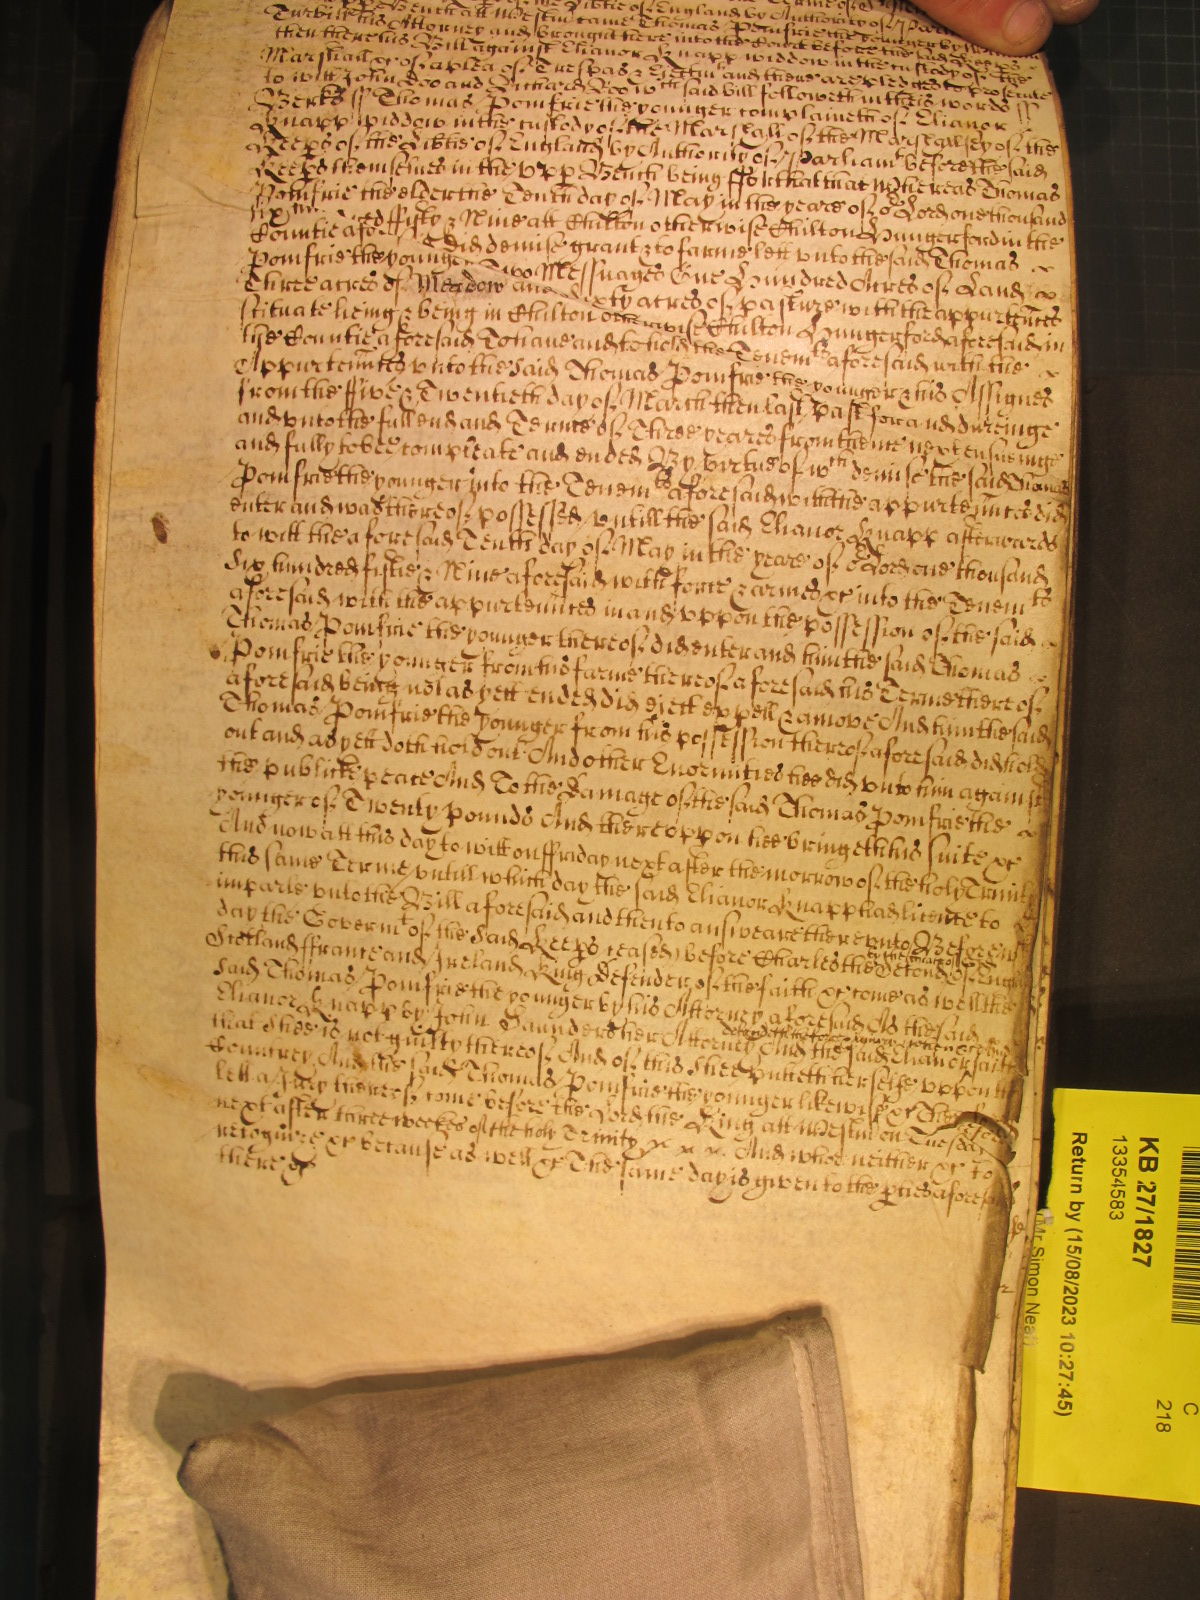 Upper Bench att Westm came Thomas Pomfrie the younger by
Turbill his Attorney and brought here into the Court before the said Keeps
then there his Bill against Elianor Knapp widdow in the custody of the
Marshall &c of a plea of Trespas & Eiectm and there are pledges to prosecute
to witt John Doo and Richard Roo wch said bill followeth in theis words ss
Berks ss Thomas Pomfrie the younger complaineth of Elianor
Knapp widdow in the custody of the Marshall of the Marshalsey of the
Keeps of the Libtie of England by Authority of Parliamt before the said
Keeps themselves in the upp Bench being ffor that that whereas Thomas
Pomfrie the elder the Tenth day of May in the yeare of or Lord one thousand
six hundred ffifty & Nine att Chilton otherwise Chilton Hungerford in the
Countie aforesaid did demise grant & to farme lett unto the said Thomas
Pomfrie the younger Two Messuages One Hundred Acres of Land
Three acres of Meadow and Sixty acres of pasture with the appurtennces
situate lieing & being in Chilton otherwise Chilton Hungerford aforesaid in
the Countie aforesaid To have and to hold the Tenemts aforesaid with the
Appurtennces unto the said Thomas Pomfrie the younger & his Assignes
from the ffive & Twentieth day of March then last past for and dureinge
and unto the full end and Terme of Three yeares from thence next ensueinge
and fully to bee compleate and ended By vertue of wch demise the said Thomas
Pomfrie the younger into the Tenemts aforesaid with the appurtennces did
enter and was thereof possessed untill the said Elianor Knapp afterwards
to witt the aforesaid Tenth day of May in the yeare of or Lord one thousand
Six hundred fiftie & Nine aforesaid with force & armes &c into the Tenemts
aforesaid with the appurtennces in and uppon the possession of the said
Thomas Pomfrie the younger thereof did enter and him the said Thomas
Pomfrie the younger from his farme thereof aforesaid his Terme thereof
aforesaid being not as yett ended did eiect expell & amove And him the said
Thomas Pomfrie the younger from his possession thereof aforesaid did hold
out and as yett doth hold out And other Enormities hee did unto him against
the publicke peace And To the damage of the said Thomas Pomfrie the
younger of Twenty pounds And thereuppon hee bringeth his suite &c
And now att this day to witt on ffriday next after the morrow of the holy Trinity
this same Terme untill which day the said Elianor Knapp had licence to
imparle unto the Bill aforesaid and then to answeare thereunto Before
day the Governmt of the said Keeps ceased before Charles the Second of England
Scotland ffrance and Ireland King defender of the faith &c come as well the
said Thomas Pomfrie the younger by his Attorney aforesaid As the said
Elianor Knapp by John Saunders her Attorney And the said Elianor saith
that shee is not guilty thereof And of this shee putteth her selfe uppon the
Countrey And the said Thomas Pomfrie the younger likewise &c Therefore
lett a Jury thereof come before the Lord the King att Westm on Tuesday
next after three weekes of the holy Trinity And who neither &c to
recognize &c because as well &c The same day is given to the pties aforesaid
thereof
KB 27/1827
13354583
Return by (15/08/2023 10:27:45)
C
218